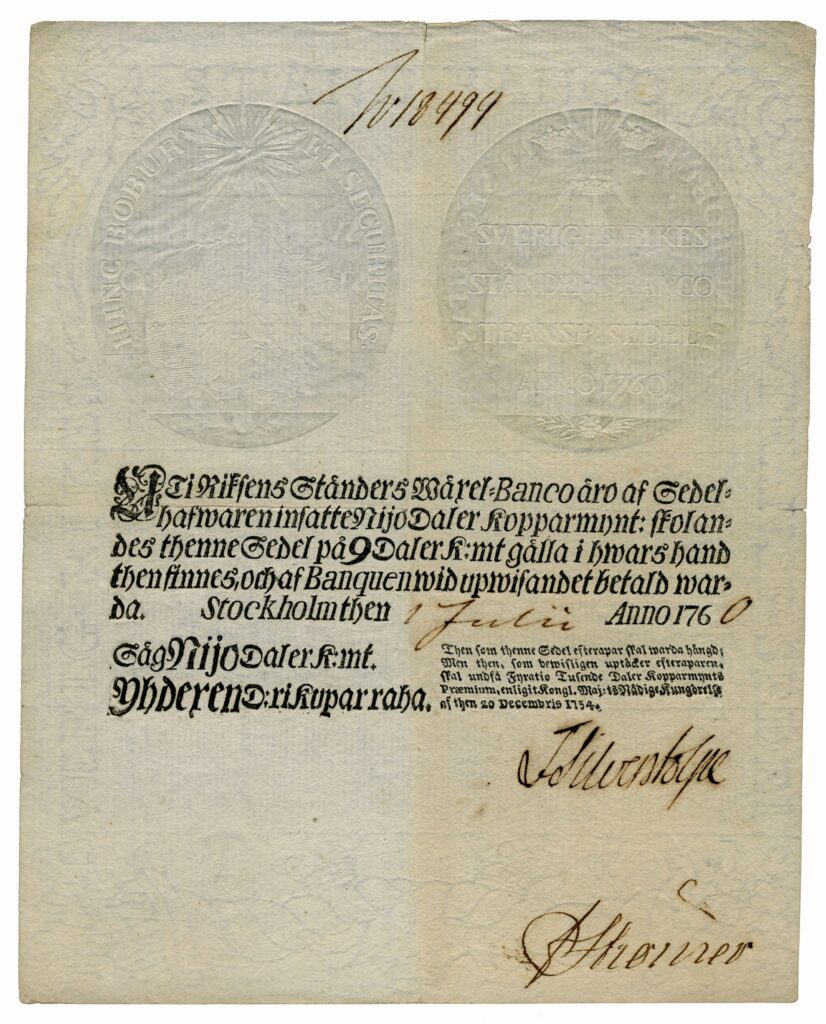 No 18494
HINC ROBUR ET SECURITAS.
SVERIGES RIKES
STÄNDERS BANCO
TRANSP. SEDEL
ANNO 1760
UTi Riksens Ständers Wäxel-Banco äro af Sedel-
hafwaren insatte Nijo Daler Kopparmynt: skolan-
des thenne Sedel på 9 Daler K:mt gälla i hwars hand
then finnes, och af Banquen wid upwisandet betald war-
da. Stockholm then 1 Julii Anno 1760
Säg Nijo Daler K:mt.
Yhdexen D:ri Kupar raha.
Then som thenne Sedel efterapar skal warda hängd;
Men then, som bewisligen uptäcker efteraparen,
skal undfå Fyratio Tusende Daler Kopparmynts
Præmium, enligit Kongl. Maj:ts Nådige Kungörelse
af then 20 Decembris 1754.